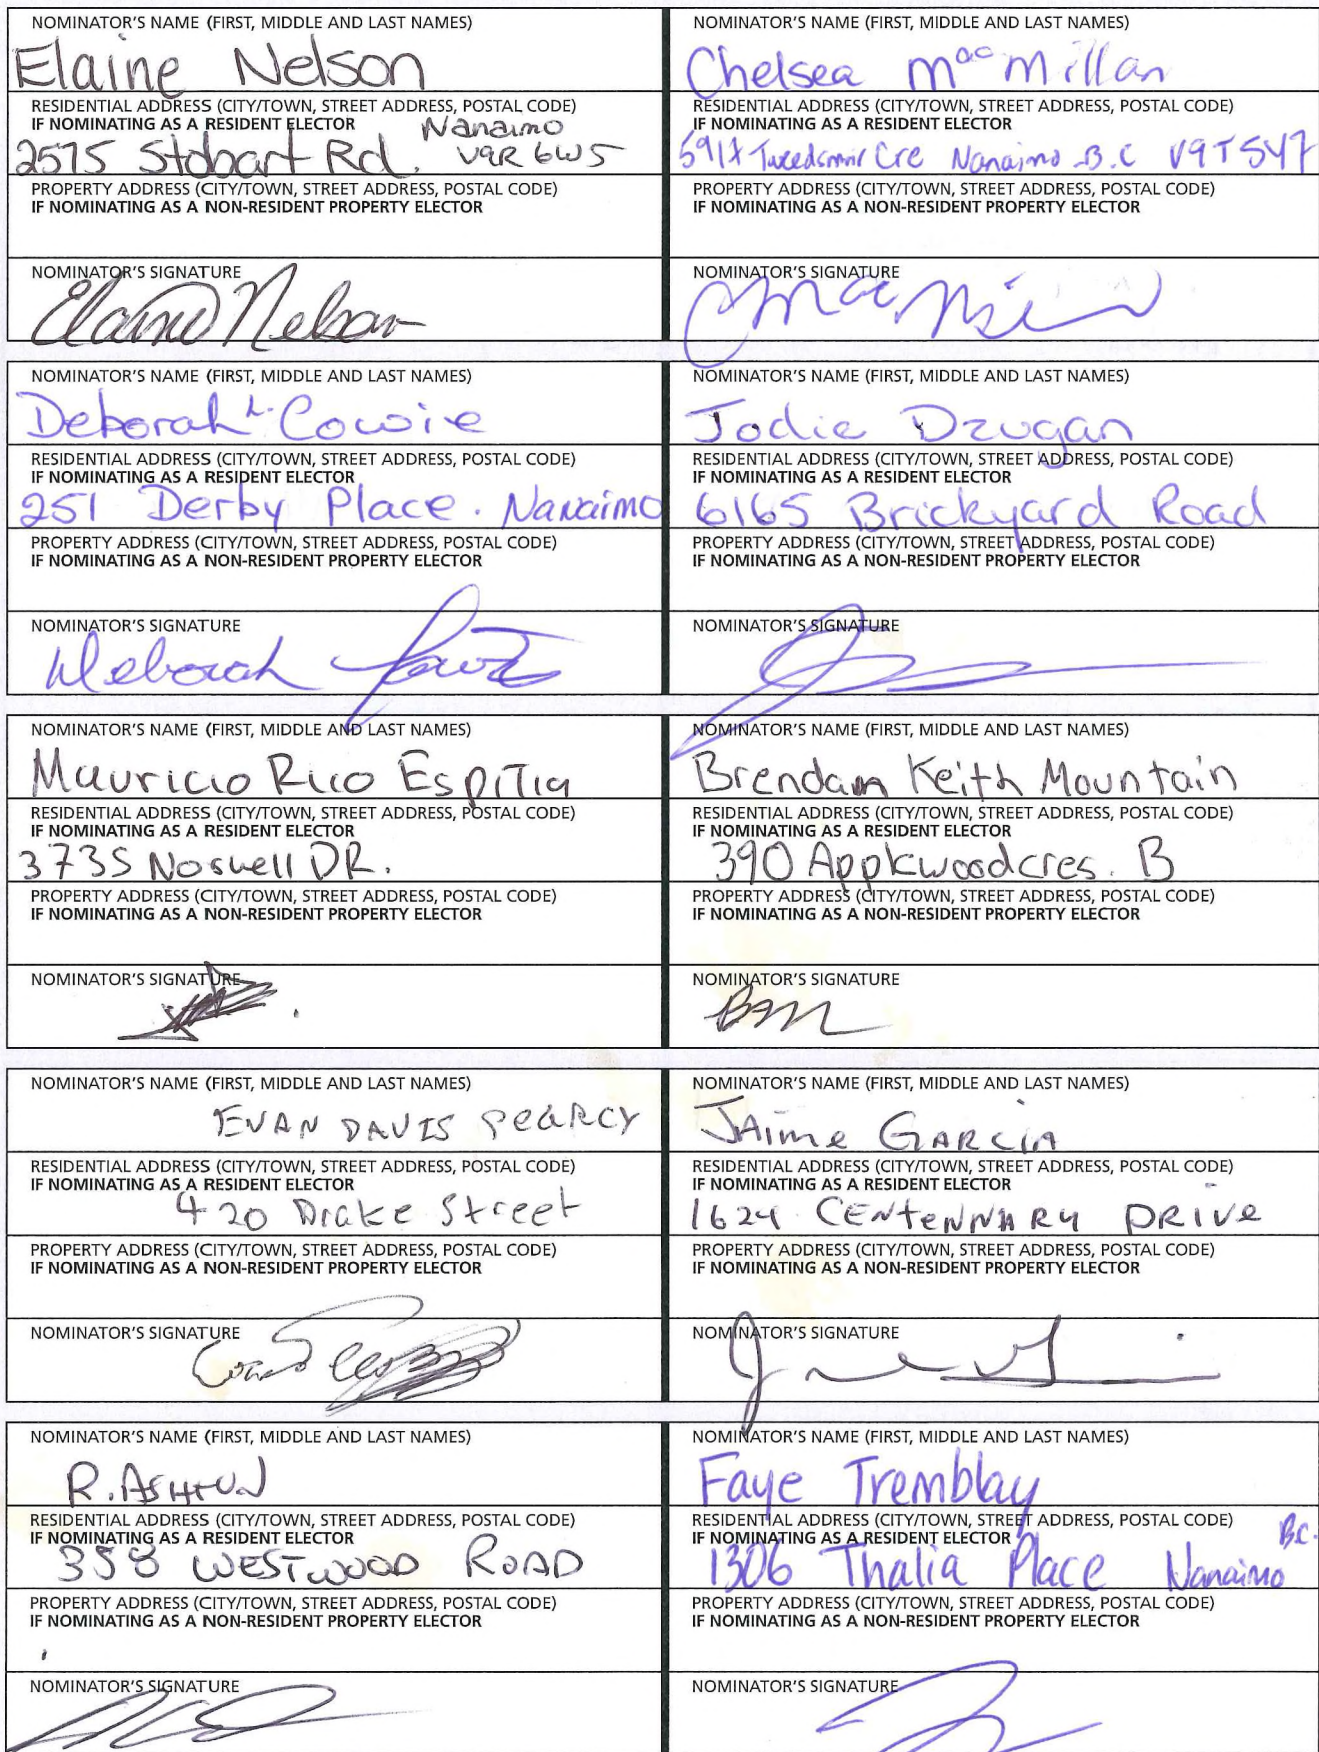 NOMINATOR'S NAME (FIRST, MIDDLE AND LAST NAMES)
Elaine Nelson
RESIDENTIAL ADDRESS (CITY/TOWN, STREET ADDRESS, POSTAL CODE)
IF NOMINATING AS A RESIDENT ELECTOR
2575 Stobart Rd. Nanaimo
V9R 6W5
PROPERTY ADDRESS (CITY/TOWN, STREET ADDRESS, POSTAL CODE)
IF NOMINATING AS A NON-RESIDENT PROPERTY ELECTOR
NOMINATOR'S SIGNATURE
Elaine Nelson
NOMINATOR'S NAME (FIRST, MIDDLE AND LAST NAMES)
Chelsea MacMillan
RESIDENTIAL ADDRESS (CITY/TOWN, STREET ADDRESS, POSTAL CODE)
IF NOMINATING AS A RESIDENT ELECTOR
Cre Nanaimo B.C V9T 5Y7
PROPERTY ADDRESS (CITY/TOWN, STREET ADDRESS, POSTAL CODE)
IF NOMINATING AS A NON-RESIDENT PROPERTY ELECTOR
NOMINATOR'S SIGNATURE
NOMINATOR'S NAME (FIRST, MIDDLE AND LAST NAMES)
Deborah L. Cowie
RESIDENTIAL ADDRESS (CITY/TOWN, STREET ADDRESS, POSTAL CODE)
IF NOMINATING AS A RESIDENT ELECTOR
251 Derby Place. Nanaimo
PROPERTY ADDRESS (CITY/TOWN, STREET ADDRESS, POSTAL CODE)
IF NOMINATING AS A NON-RESIDENT PROPERTY ELECTOR
NOMINATOR'S SIGNATURE
Deborah Cowie
NOMINATOR'S NAME (FIRST, MIDDLE AND LAST NAMES)
Jodie Dzugan
RESIDENTIAL ADDRESS (CITY/TOWN, STREET ADDRESS, POSTAL CODE)
IF NOMINATING AS A RESIDENT ELECTOR
6165 Brickyard Road
PROPERTY ADDRESS (CITY/TOWN, STREET ADDRESS, POSTAL CODE)
IF NOMINATING AS A NON-RESIDENT PROPERTY ELECTOR
NOMINATOR'S SIGNATURE
NOMINATOR'S NAME (FIRST, MIDDLE AND LAST NAMES)
Mauricio Rico Espitia
RESIDENTIAL ADDRESS (CITY/TOWN, STREET ADDRESS, POSTAL CODE)
IF NOMINATING AS A RESIDENT ELECTOR
3735 Noswell DR.
PROPERTY ADDRESS (CITY/TOWN, STREET ADDRESS, POSTAL CODE)
IF NOMINATING AS A NON-RESIDENT PROPERTY ELECTOR
NOMINATOR'S SIGNATURE
NOMINATOR'S NAME (FIRST, MIDDLE AND LAST NAMES)
Brendan Keith Mountain
RESIDENTIAL ADDRESS (CITY/TOWN, STREET ADDRESS, POSTAL CODE)
IF NOMINATING AS A RESIDENT ELECTOR
390 Applewood cres. B
PROPERTY ADDRESS (CITY/TOWN, STREET ADDRESS, POSTAL CODE)
IF NOMINATING AS A NON-RESIDENT PROPERTY ELECTOR
NOMINATOR'S SIGNATURE
NOMINATOR'S NAME (FIRST, MIDDLE AND LAST NAMES)
EVAN DAVIS PEARCY
RESIDENTIAL ADDRESS (CITY/TOWN, STREET ADDRESS, POSTAL CODE)
IF NOMINATING AS A RESIDENT ELECTOR
420 Drake Street
PROPERTY ADDRESS (CITY/TOWN, STREET ADDRESS, POSTAL CODE)
IF NOMINATING AS A NON-RESIDENT PROPERTY ELECTOR
NOMINATOR'S SIGNATURE
NOMINATOR'S NAME (FIRST, MIDDLE AND LAST NAMES)
JAime GARCIA
RESIDENTIAL ADDRESS (CITY/TOWN, STREET ADDRESS, POSTAL CODE)
IF NOMINATING AS A RESIDENT ELECTOR
1624 CENTENNARY DRIVE
PROPERTY ADDRESS (CITY/TOWN, STREET ADDRESS, POSTAL CODE)
IF NOMINATING AS A NON-RESIDENT PROPERTY ELECTOR
NOMINATOR'S SIGNATURE
NOMINATOR'S NAME (FIRST, MIDDLE AND LAST NAMES)
R. ASHTON
RESIDENTIAL ADDRESS (CITY/TOWN, STREET ADDRESS, POSTAL CODE)
IF NOMINATING AS A RESIDENT ELECTOR
358 WESTWOOD ROAD
PROPERTY ADDRESS (CITY/TOWN, STREET ADDRESS, POSTAL CODE)
IF NOMINATING AS A NON-RESIDENT PROPERTY ELECTOR
NOMINATOR'S SIGNATURE
NOMINATOR'S NAME (FIRST, MIDDLE AND LAST NAMES)
Faye Tremblay
RESIDENTIAL ADDRESS (CITY/TOWN, STREET ADDRESS, POSTAL CODE)
IF NOMINATING AS A RESIDENT ELECTOR
1306 Thalia Place Nanaimo B.C.
PROPERTY ADDRESS (CITY/TOWN, STREET ADDRESS, POSTAL CODE)
IF NOMINATING AS A NON-RESIDENT PROPERTY ELECTOR
NOMINATOR'S SIGNATURE